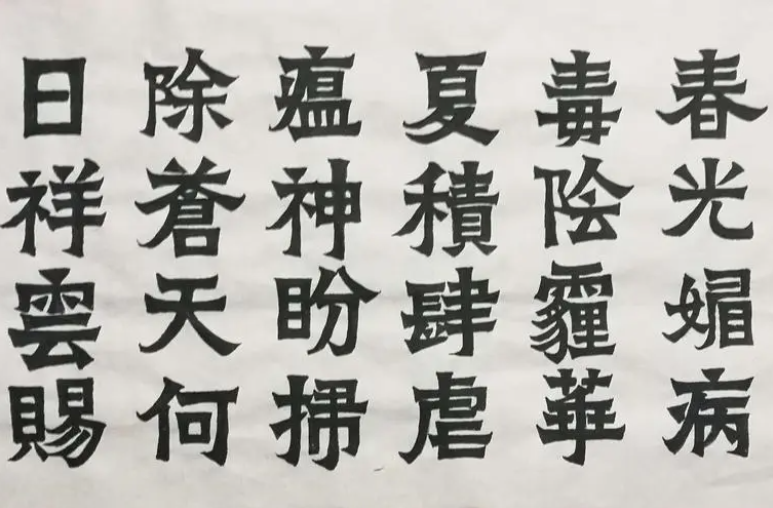 春光媚病
毒陰霾華
夏積肆虐
瘟神盼掃
除蒼天何
日祥雲賜